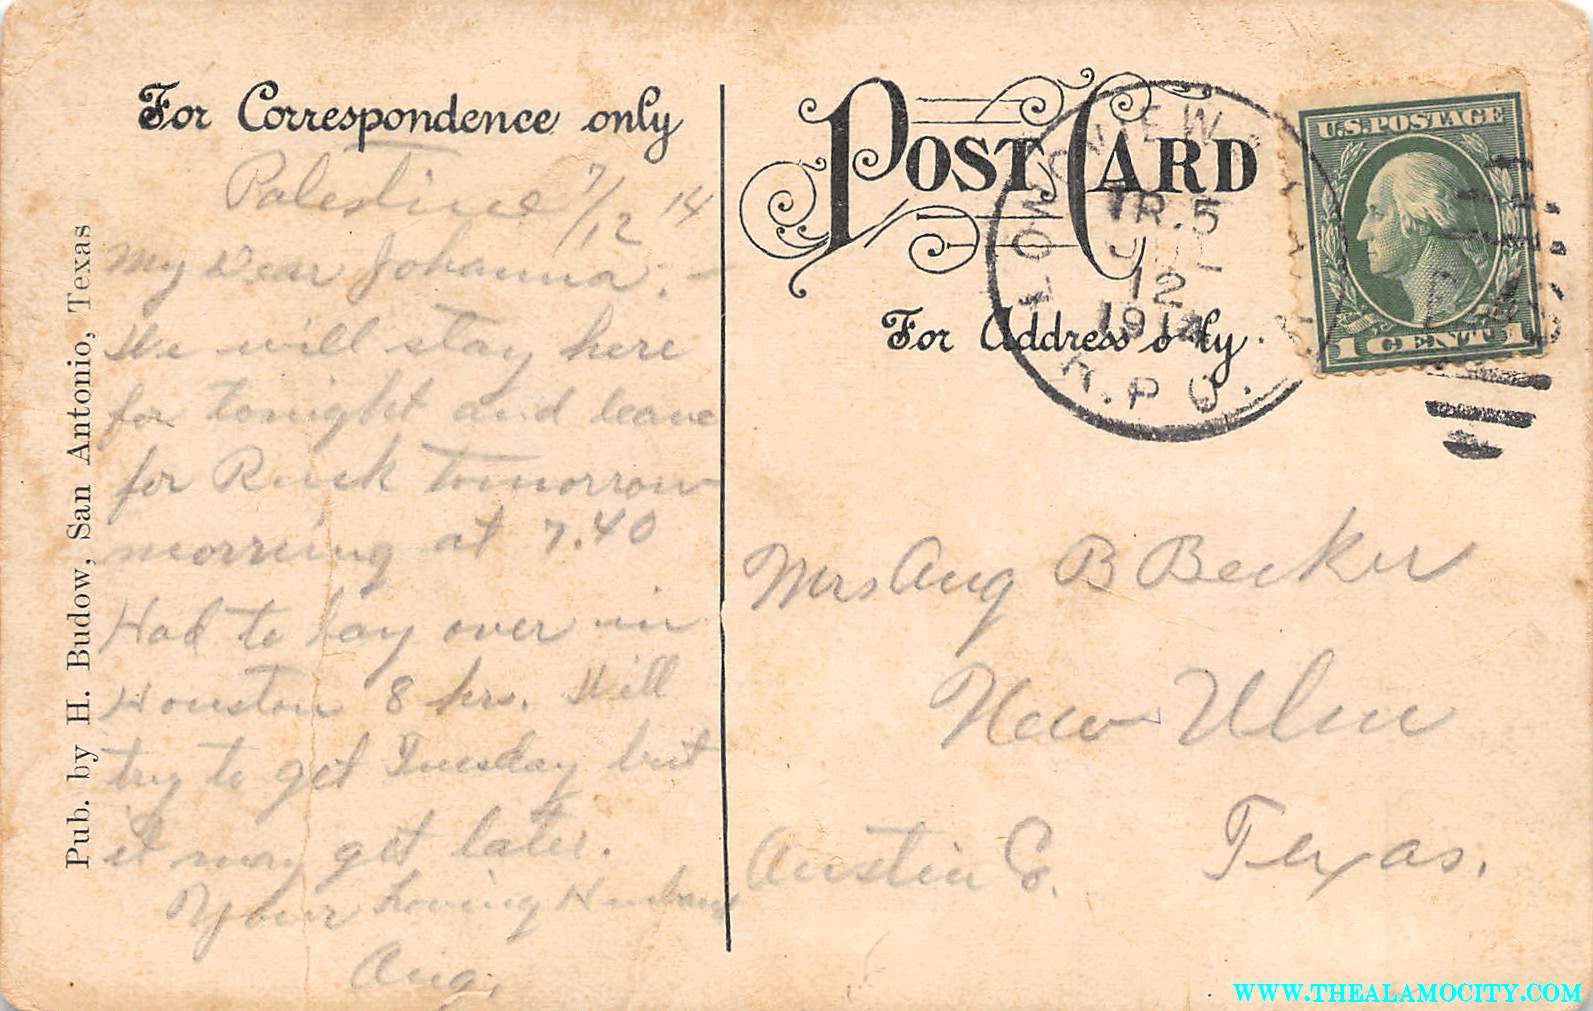 For Correspondence only
Palestine 7/12 14
My Dear Johanna; -
We will stay here
for tonight and leave
for Rusk tomorrow
morning at 7.40
Had to lay over in
Houston 8 hrs. Will
try to get Tuesday but
it may get later.
Your Loving Husband
Aug.
Pub. by H. Budow, San Antonio, Texas
POST CARD
For Address only.
LONGVIEW
TR. 5
JUL
12
1914
R.P.O.
U.S. POSTAGE
1 CENT 1
Mrs Aug B Becker
New Ulm
Austin Co. Texas.
WWW.THEALAMOCITY.COM